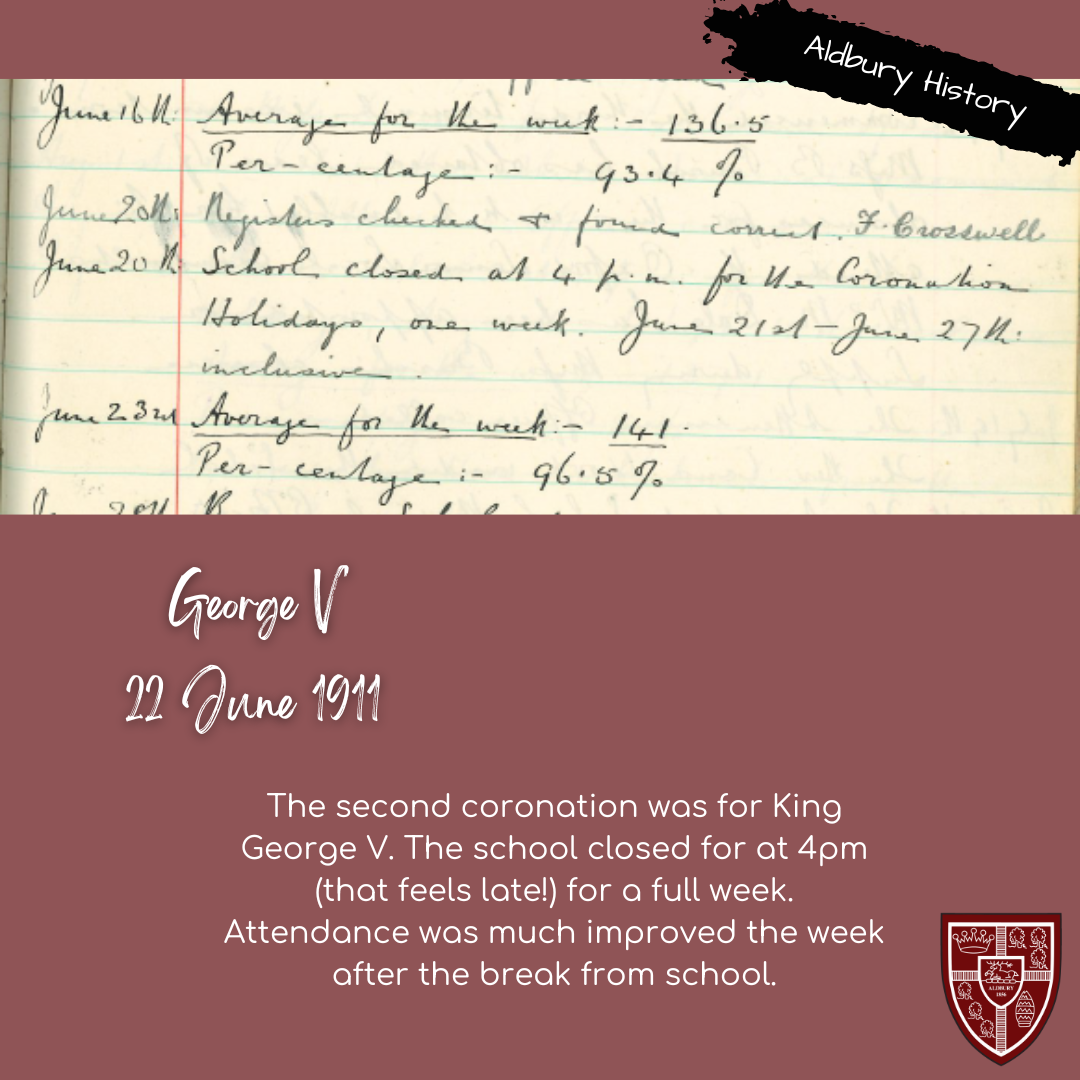 Aldbury History
June 16th: Average for the week:- 136.5
Per-centage:- 93.4 %
June 20th: Registers checked & found correct. F. Crosswell
June 20th: School closed at 4 p.m. for the Coronation
Holidays, one week. June 21st – June 27th:
inclusive.
June 23rd Average for the week:- 141.
Per-centage:- 96.5 %
George V
22 June 1911
The second coronation was for King
George V. The school closed for at 4pm
(that feels late!) for a full week.
Attendance was much improved the week
after the break from school.
ALDBURY
1856